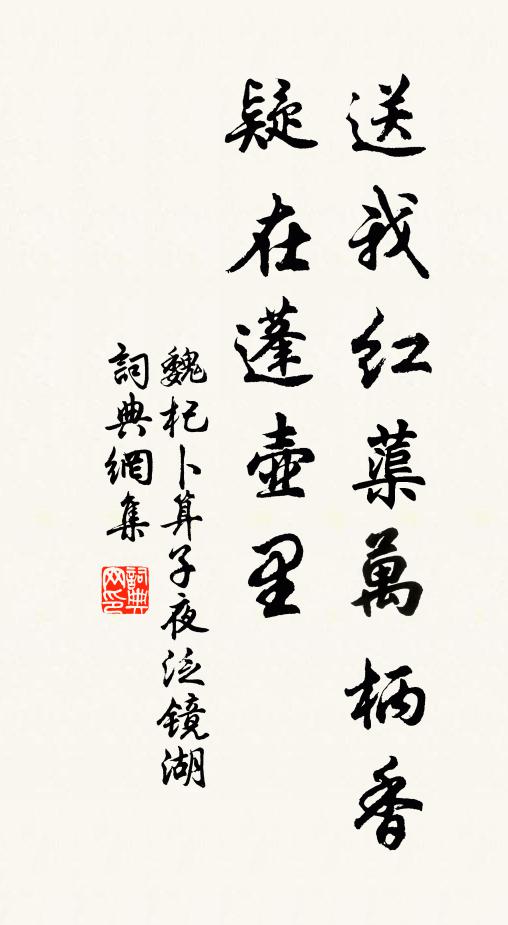 送我红蕖萬柄香
疑在蓬壺里
魏杞卜算子夜泛镜湖
詞典網集
詞典网印